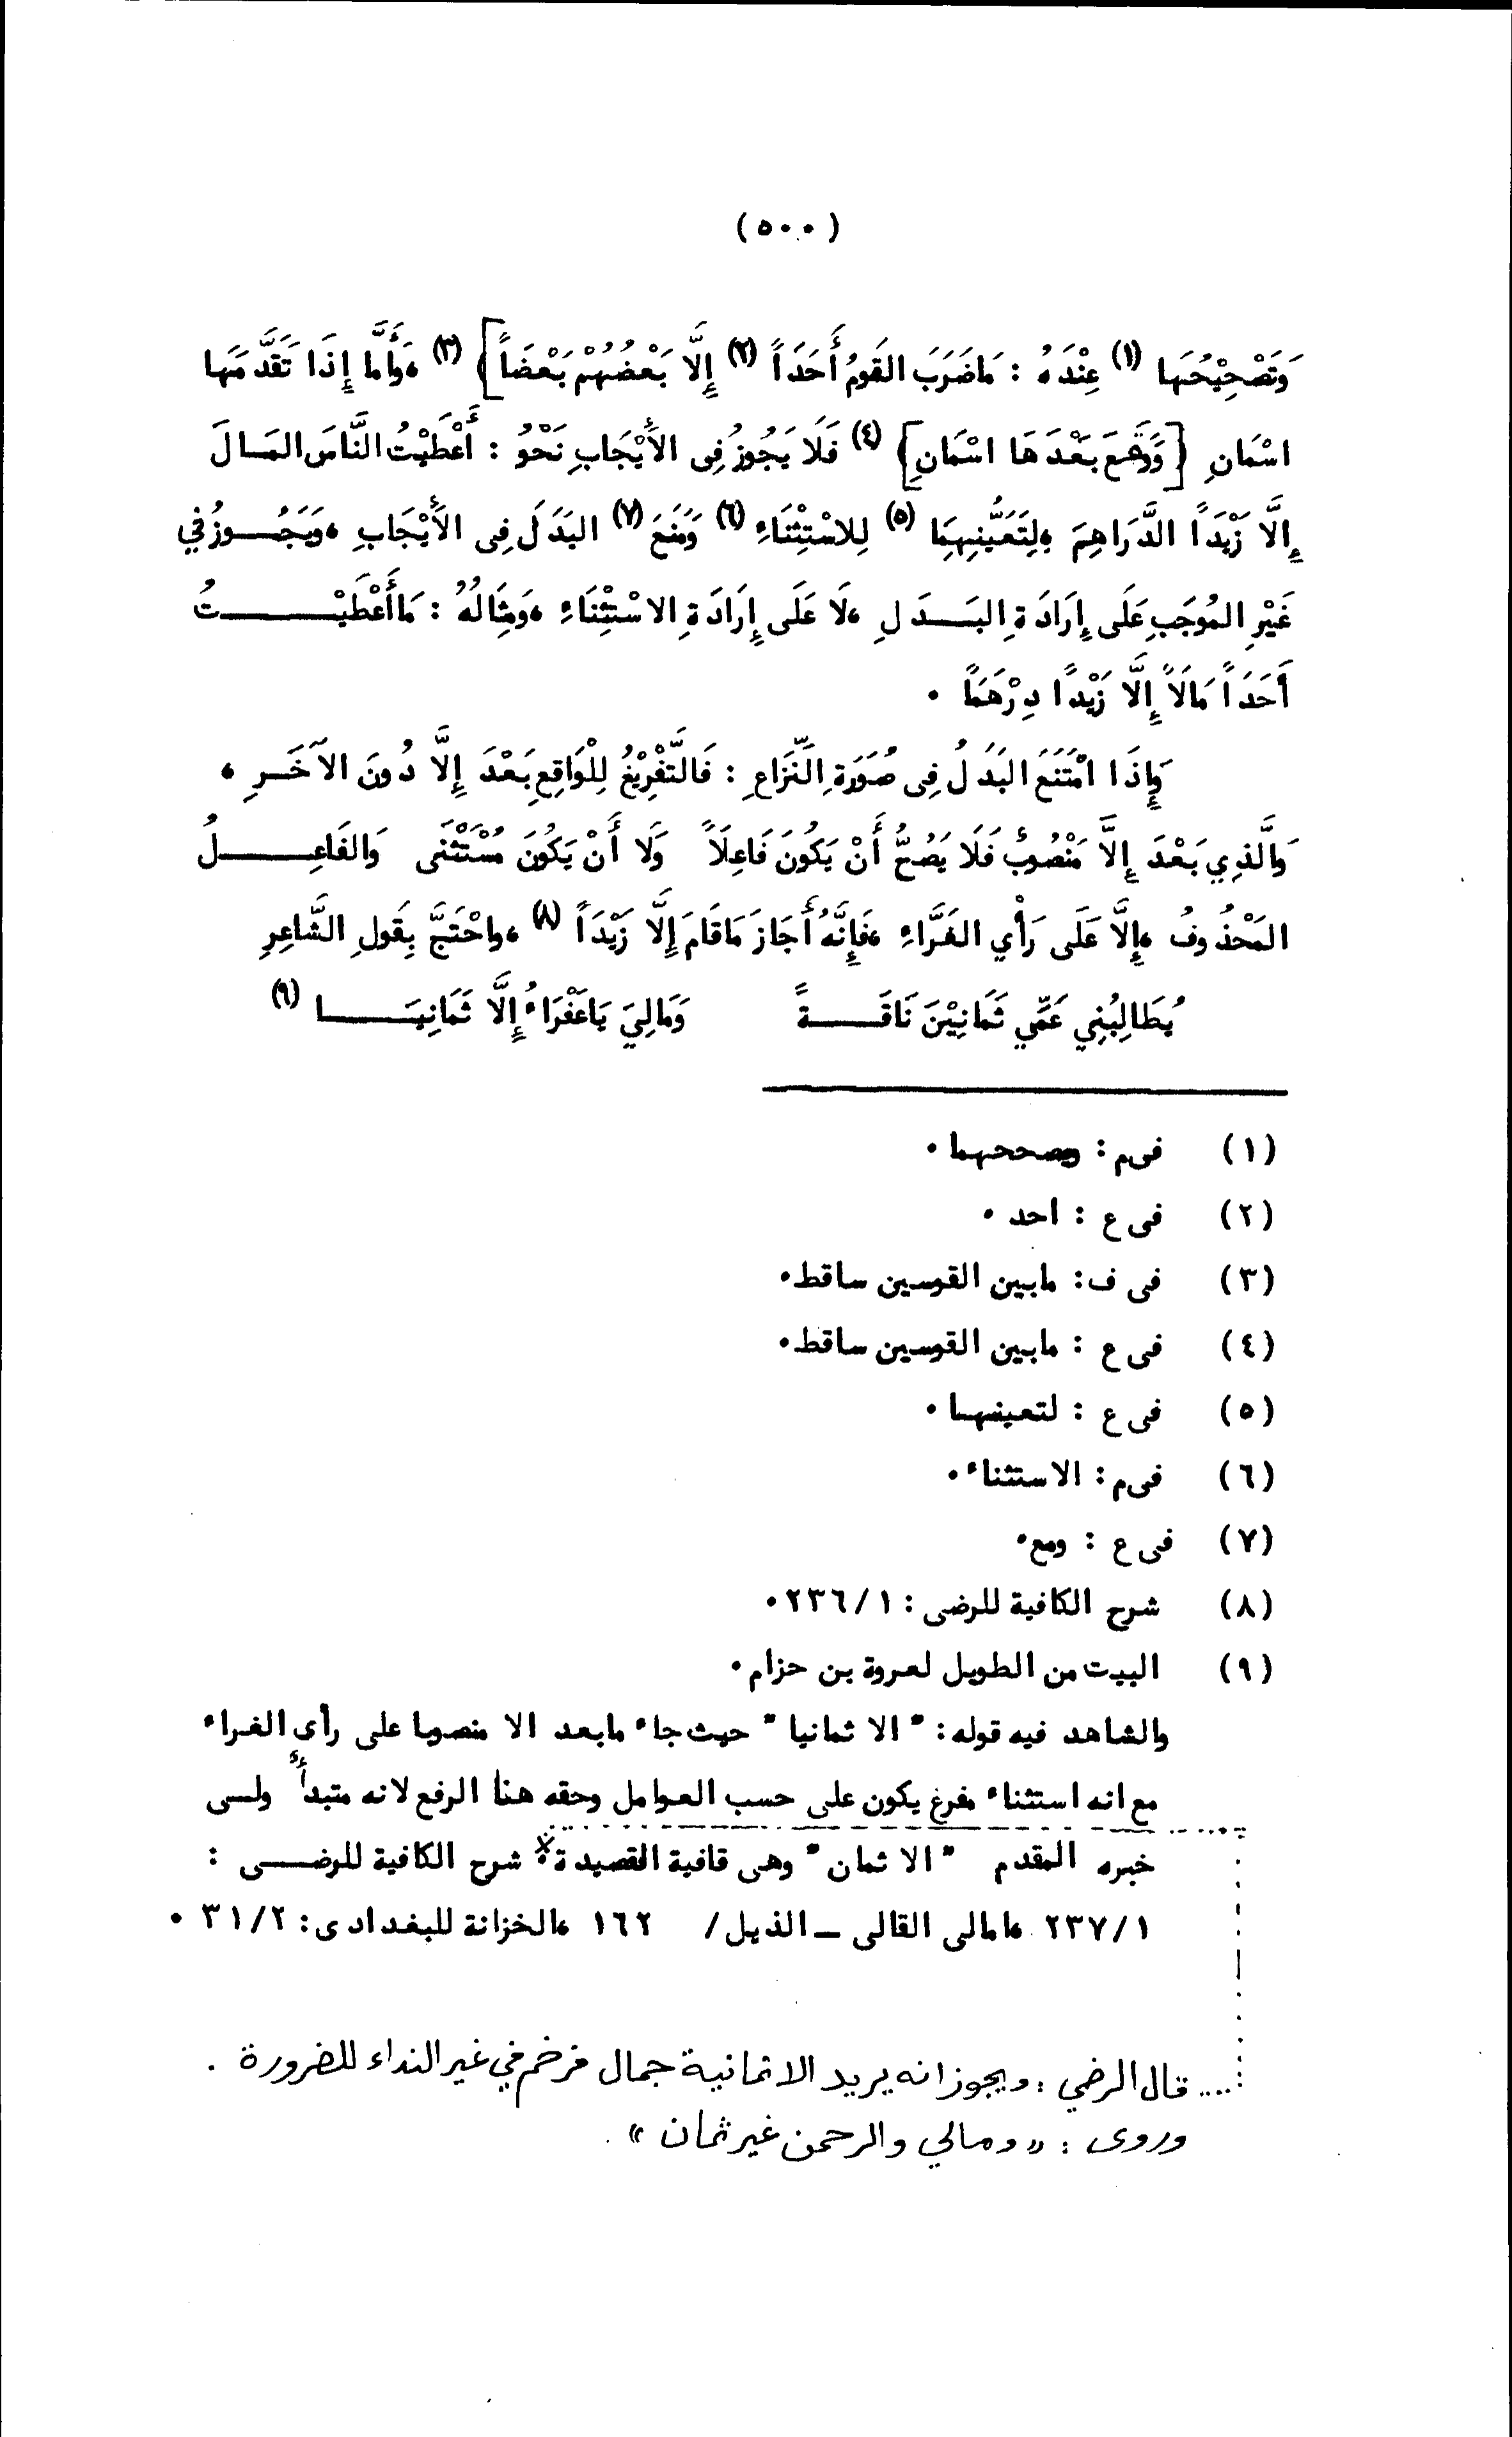 (٥٠٠)
وَتَصْحِيْحُهَا (١) عِنْدَهُ : مَاضَرَبَ القَومُ أَحَدَاً (٢) إِلَّا بَعْضُهُمْ بَعْضَاً] (٣) ، وَأَمَّا إِذَا تَقَدَّمَهَا
اسْمَانِ [وَوَقَعَ بَعْدَهَا اسْمَانِ] (٤) فَلَا يَجُوزُ فِى الأَيْجَابِ نَحْوُ : أَعْطَيْتُ النَّاسَ المَالَ
إِلَّا زَيْدَاً الدَّرَاهِمَ ، لِتَعَيُّنِهِمَا (٥) لِلاسْتِثْنَاءِ (٦) وَمَنَعَ (٧) البَدَلَ فِى الأَيْجَابِ ، وَيَجُوزُ في
غَيْرِ المُوجَبِ عَلَى إِرَادَةِ البَدَلِ ، لَا عَلَى إِرَادَةِ الاسْتِثْنَاءِ ، وَمِثَالُهُ : مَا أَعْطَيْتُ
أَحَدَاً مَالَاً إِلَّا زَيْدًا دِرْهَمَاً .
وَإِذَا امْتَنَعَ البَدَلُ فِى صُوَرَةِ النِّزَاعِ : فَالتَّفْرِيْغُ لِلْوَاقِعِ بَعْدَ إِلَّا دُونَ الآخَرِ ،
وَالَّذِي بَعْدَ إِلَّا مَنْصُوبٌ فَلَا يَصُحُّ أَنْ يَكُونَ فَاعِلَاً وَلَا أَنْ يَكُونَ مُسْتَثْنَى وَالفَاعِلُ
المَحْذُوفُ ، إِلَّا عَلَى رَأْي الفَرَّاءِ ، فَإِنَّهُ أَجَازَ مَاقَامَ إِلَّا زَيْدَاً (٨) ، واحْتَجَّ بِقَولِ الشَّاعِرِ
يُطَالِبُنِي عَمِّي ثَمَانِيْنَ نَاقَةً وَمَالِيَ يَاعَفْرَاءُ إِلَّا ثَمَانِيَا (٩)
(١) فى م : ويصححهما .
(٢) فى ع : احد .
(٣) فى ف : مابين القوسين ساقط .
(٤) فى ع : مابين القوسين ساقط .
(٥) فى ع : لتعينها .
(٦) فى م : الاستثناء .
(٧) فى ع : ومع .
(٨) شرح الكافية للرضى : ١ / ٢٣٦ .
(٩) البيت من الطويل لعروة بن حزام .
والشاهد فيه قوله : " الا ثمانيا " حيث جاء مابعد الا منصوبا على رأى الفراء
مع انه استثناء مفرغ يكون على حسب العوامل وحقه هنا الرفع لانه متبدأ ولسى
خبره المقدم " الا ثمان " وهى قافية القصيدة . شرح الكافية للرضى :
١ / ٢٣٧ ، امالى القالى ــ الذيل / ١٦٢ ، الخزانة للبغدادى : ٢ / ٣١ .
.... قال الرضي : ويجوز انه يريد الا ثمانية جمال فرخم في غير النداء للضرورة .
وروى : « ومالي والرحمن غير ثمان » .